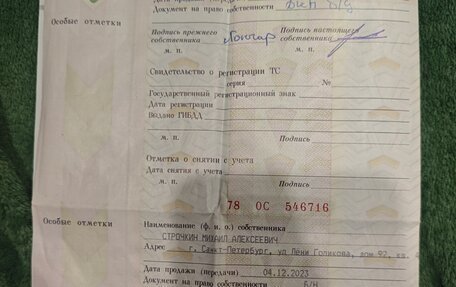 Документ на право собственности ДКП б/н
Особые отметки
Подпись прежнего Подпись настоящего
собственника Гончар собственника
м. п. м. п.
Свидетельство о регистрации ТС
серия №
Государственный регистрационный знак
Дата регистрации
Выдано ГИБДД
м. п. Подпись
Отметка о снятии с учета
Дата снятия с учета
м. п. Подпись
78 ОС 546716
Особые отметки
Наименование (ф. и. о.) собственника
СТРОЧКИН МИХАИЛ АЛЕКСЕЕВИЧ
Адрес г. Санкт-Петербург, ул Лёни Голикова, дом 92, кв.
Дата продажи (передачи) 04.12.2023
Документ на право собственности Б/Н